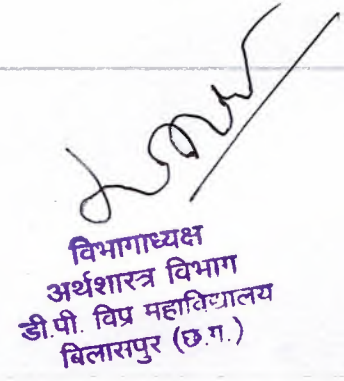 विभागाध्यक्ष
अर्थशास्त्र विभाग
डी.पी. विप्र महाविद्यालय
बिलासपुर (छ.ग.)